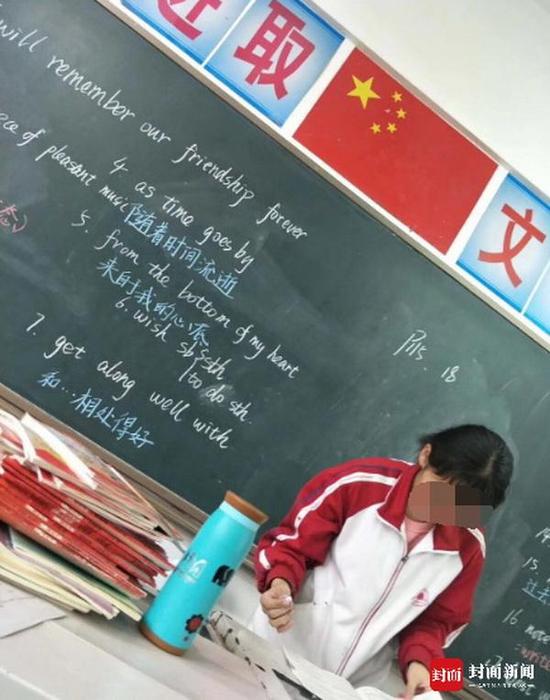 进取
文
will remember our friendship forever
piece of pleasant music
4. as time goes by
随着时间流逝
5. from the bottom of my heart
来自于我的心底
6. wish sb sth
to do sth.
7. get along well with
和…相处得好
P115. 18
15.
过去
16. note
封面
封面新闻